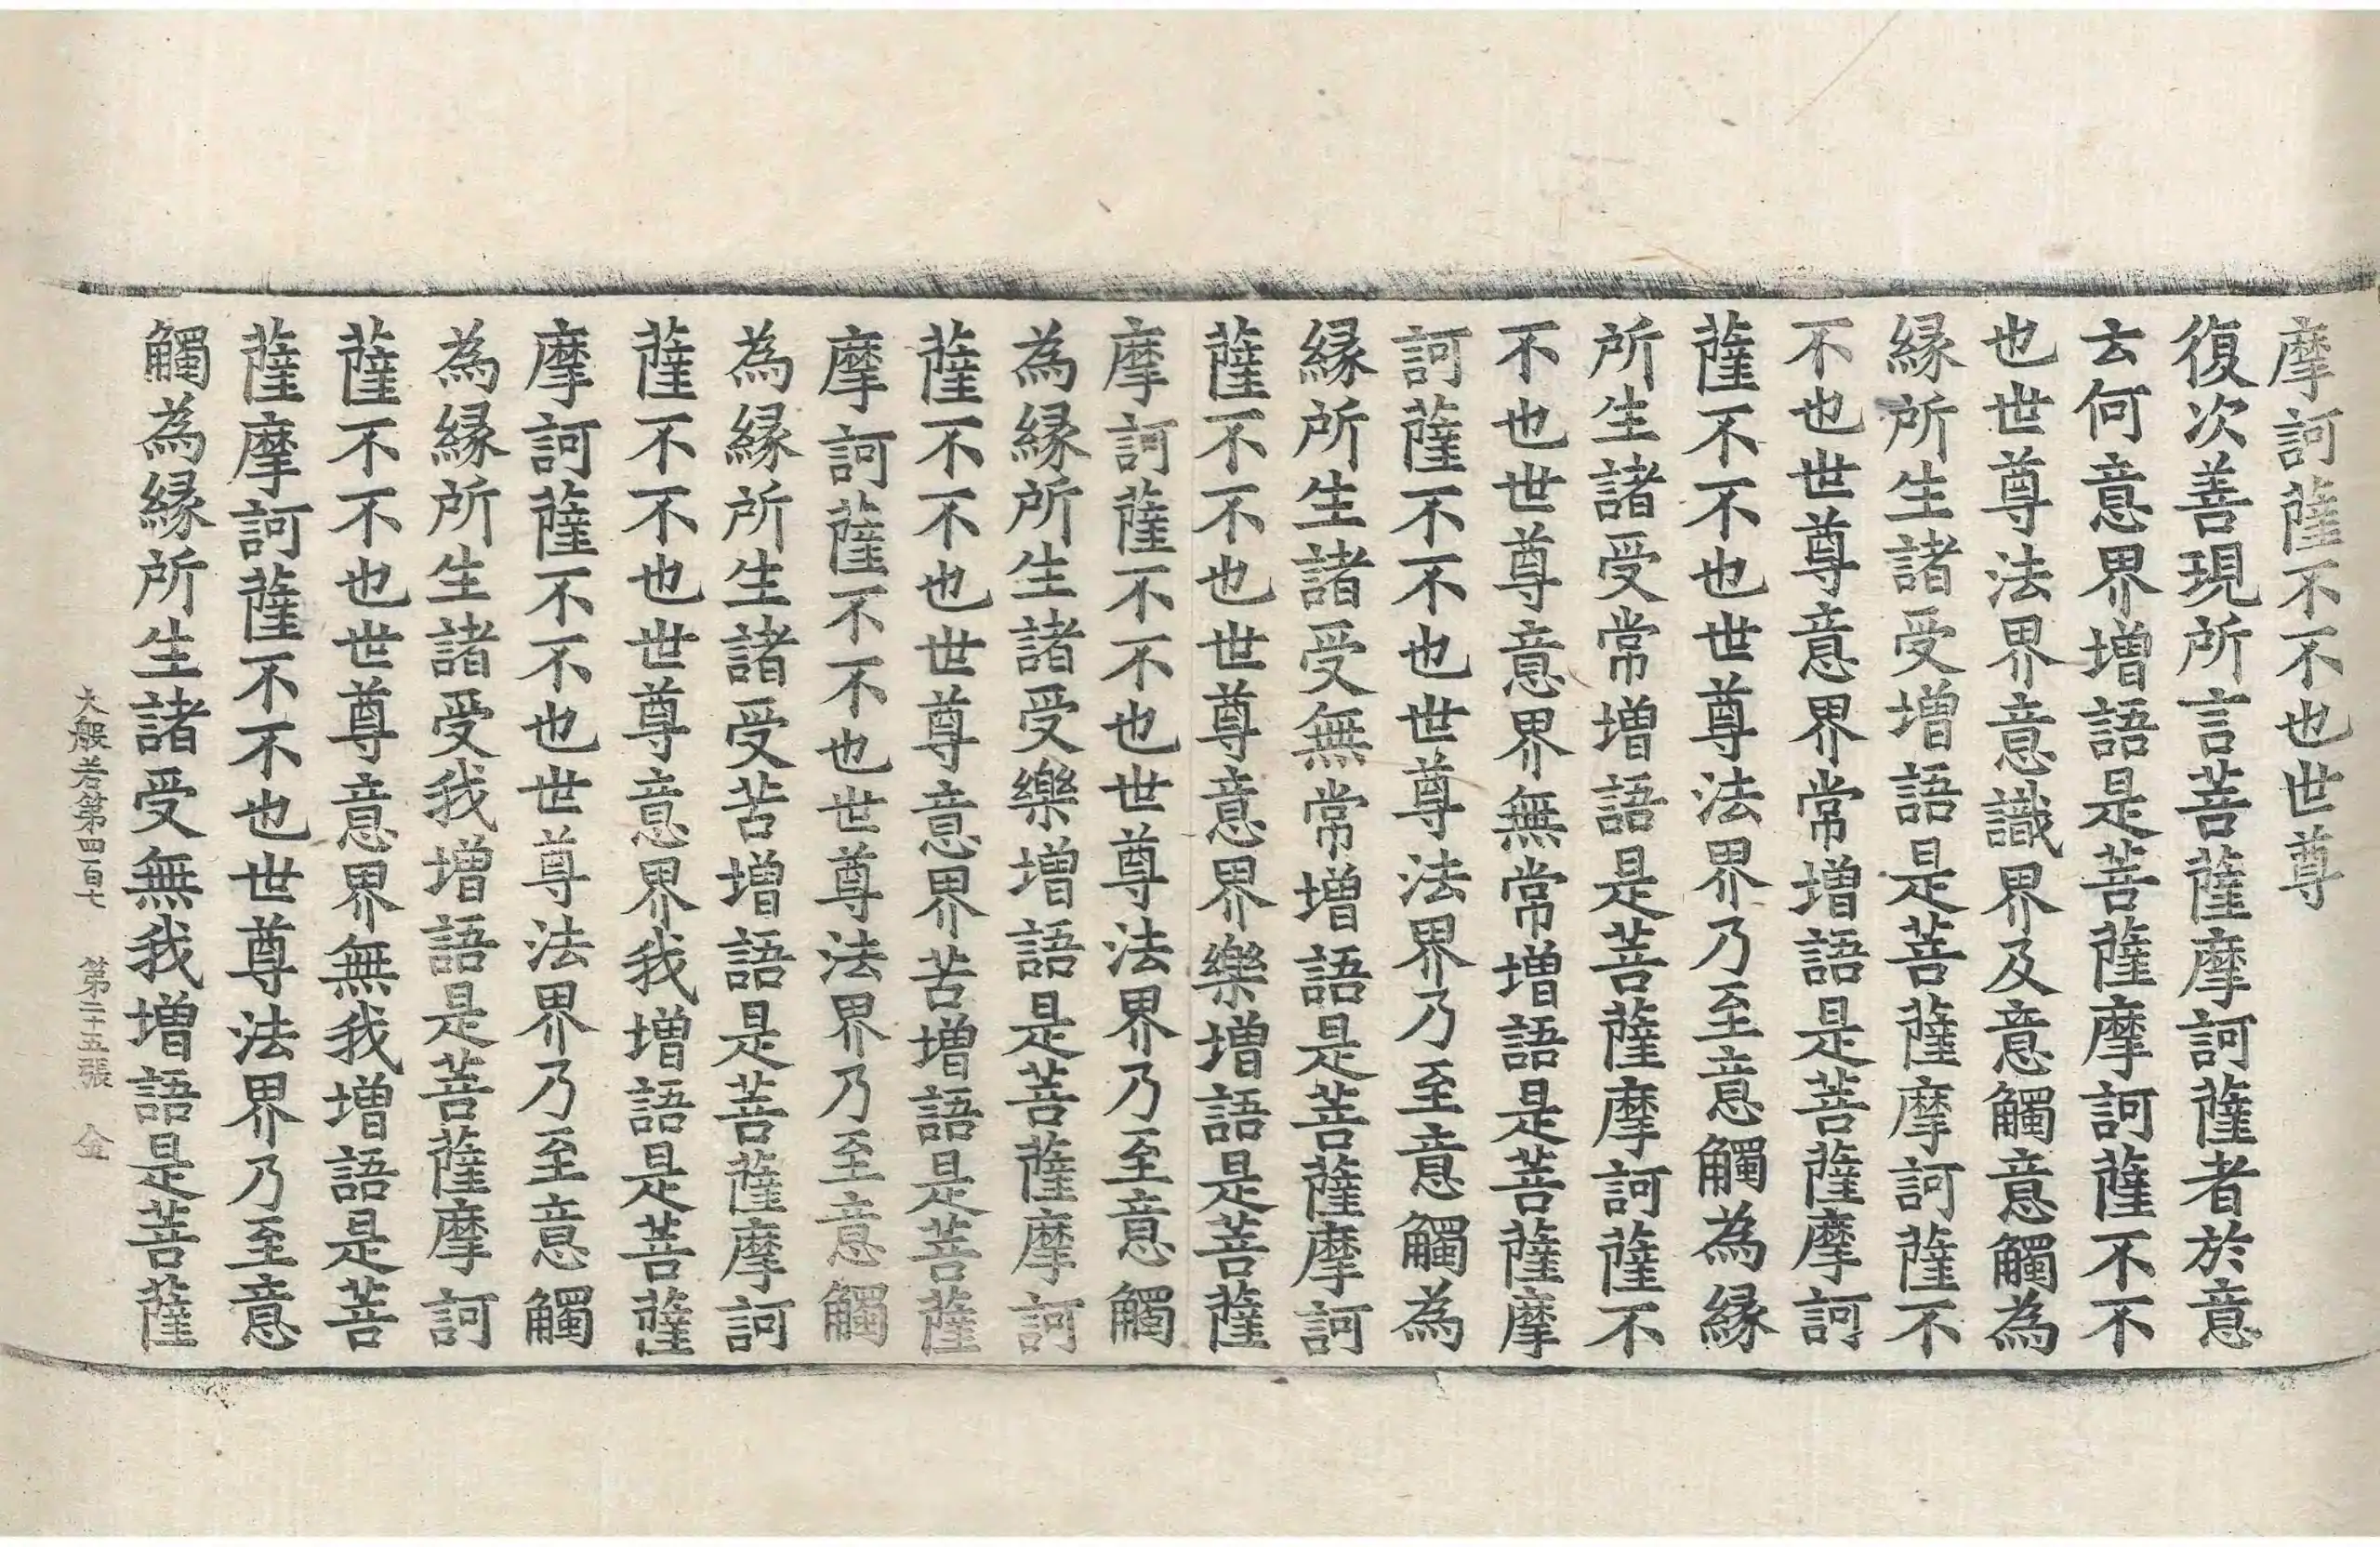 摩訶薩不不也世尊
復次善現所言菩薩摩訶薩者於意
云何意界增語是菩薩摩訶薩不不
也世尊法界意識界及意觸意觸為
縁所生諸受增語是菩薩摩訶薩不
不也世尊意界常增語是菩薩摩訶
薩不不也世尊法界乃至意觸為縁
所生諸受常增語是菩薩摩訶薩不
不也世尊意界無常增語是菩薩摩
訶薩不不也世尊法界乃至意觸為
縁所生諸受無常增語是菩薩摩訶
薩不不也世尊意界樂增語是菩薩
摩訶薩不不也世尊法界乃至意觸
為縁所生諸受樂增語是菩薩摩訶
薩不不也世尊意界苦增語是菩薩
摩訶薩不不也世尊法界乃至意觸
為縁所生諸受苦增語是菩薩摩訶
薩不不也世尊意界我增語是菩薩
摩訶薩不不也世尊法界乃至意觸
為縁所生諸受我增語是菩薩摩訶
薩不不也世尊意界無我增語是菩
薩摩訶薩不不也世尊法界乃至意
觸為縁所生諸受無我增語是菩薩
大般若第四百七 第二十五張 金